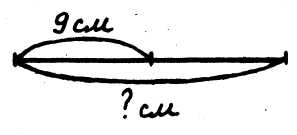 9 см
? см